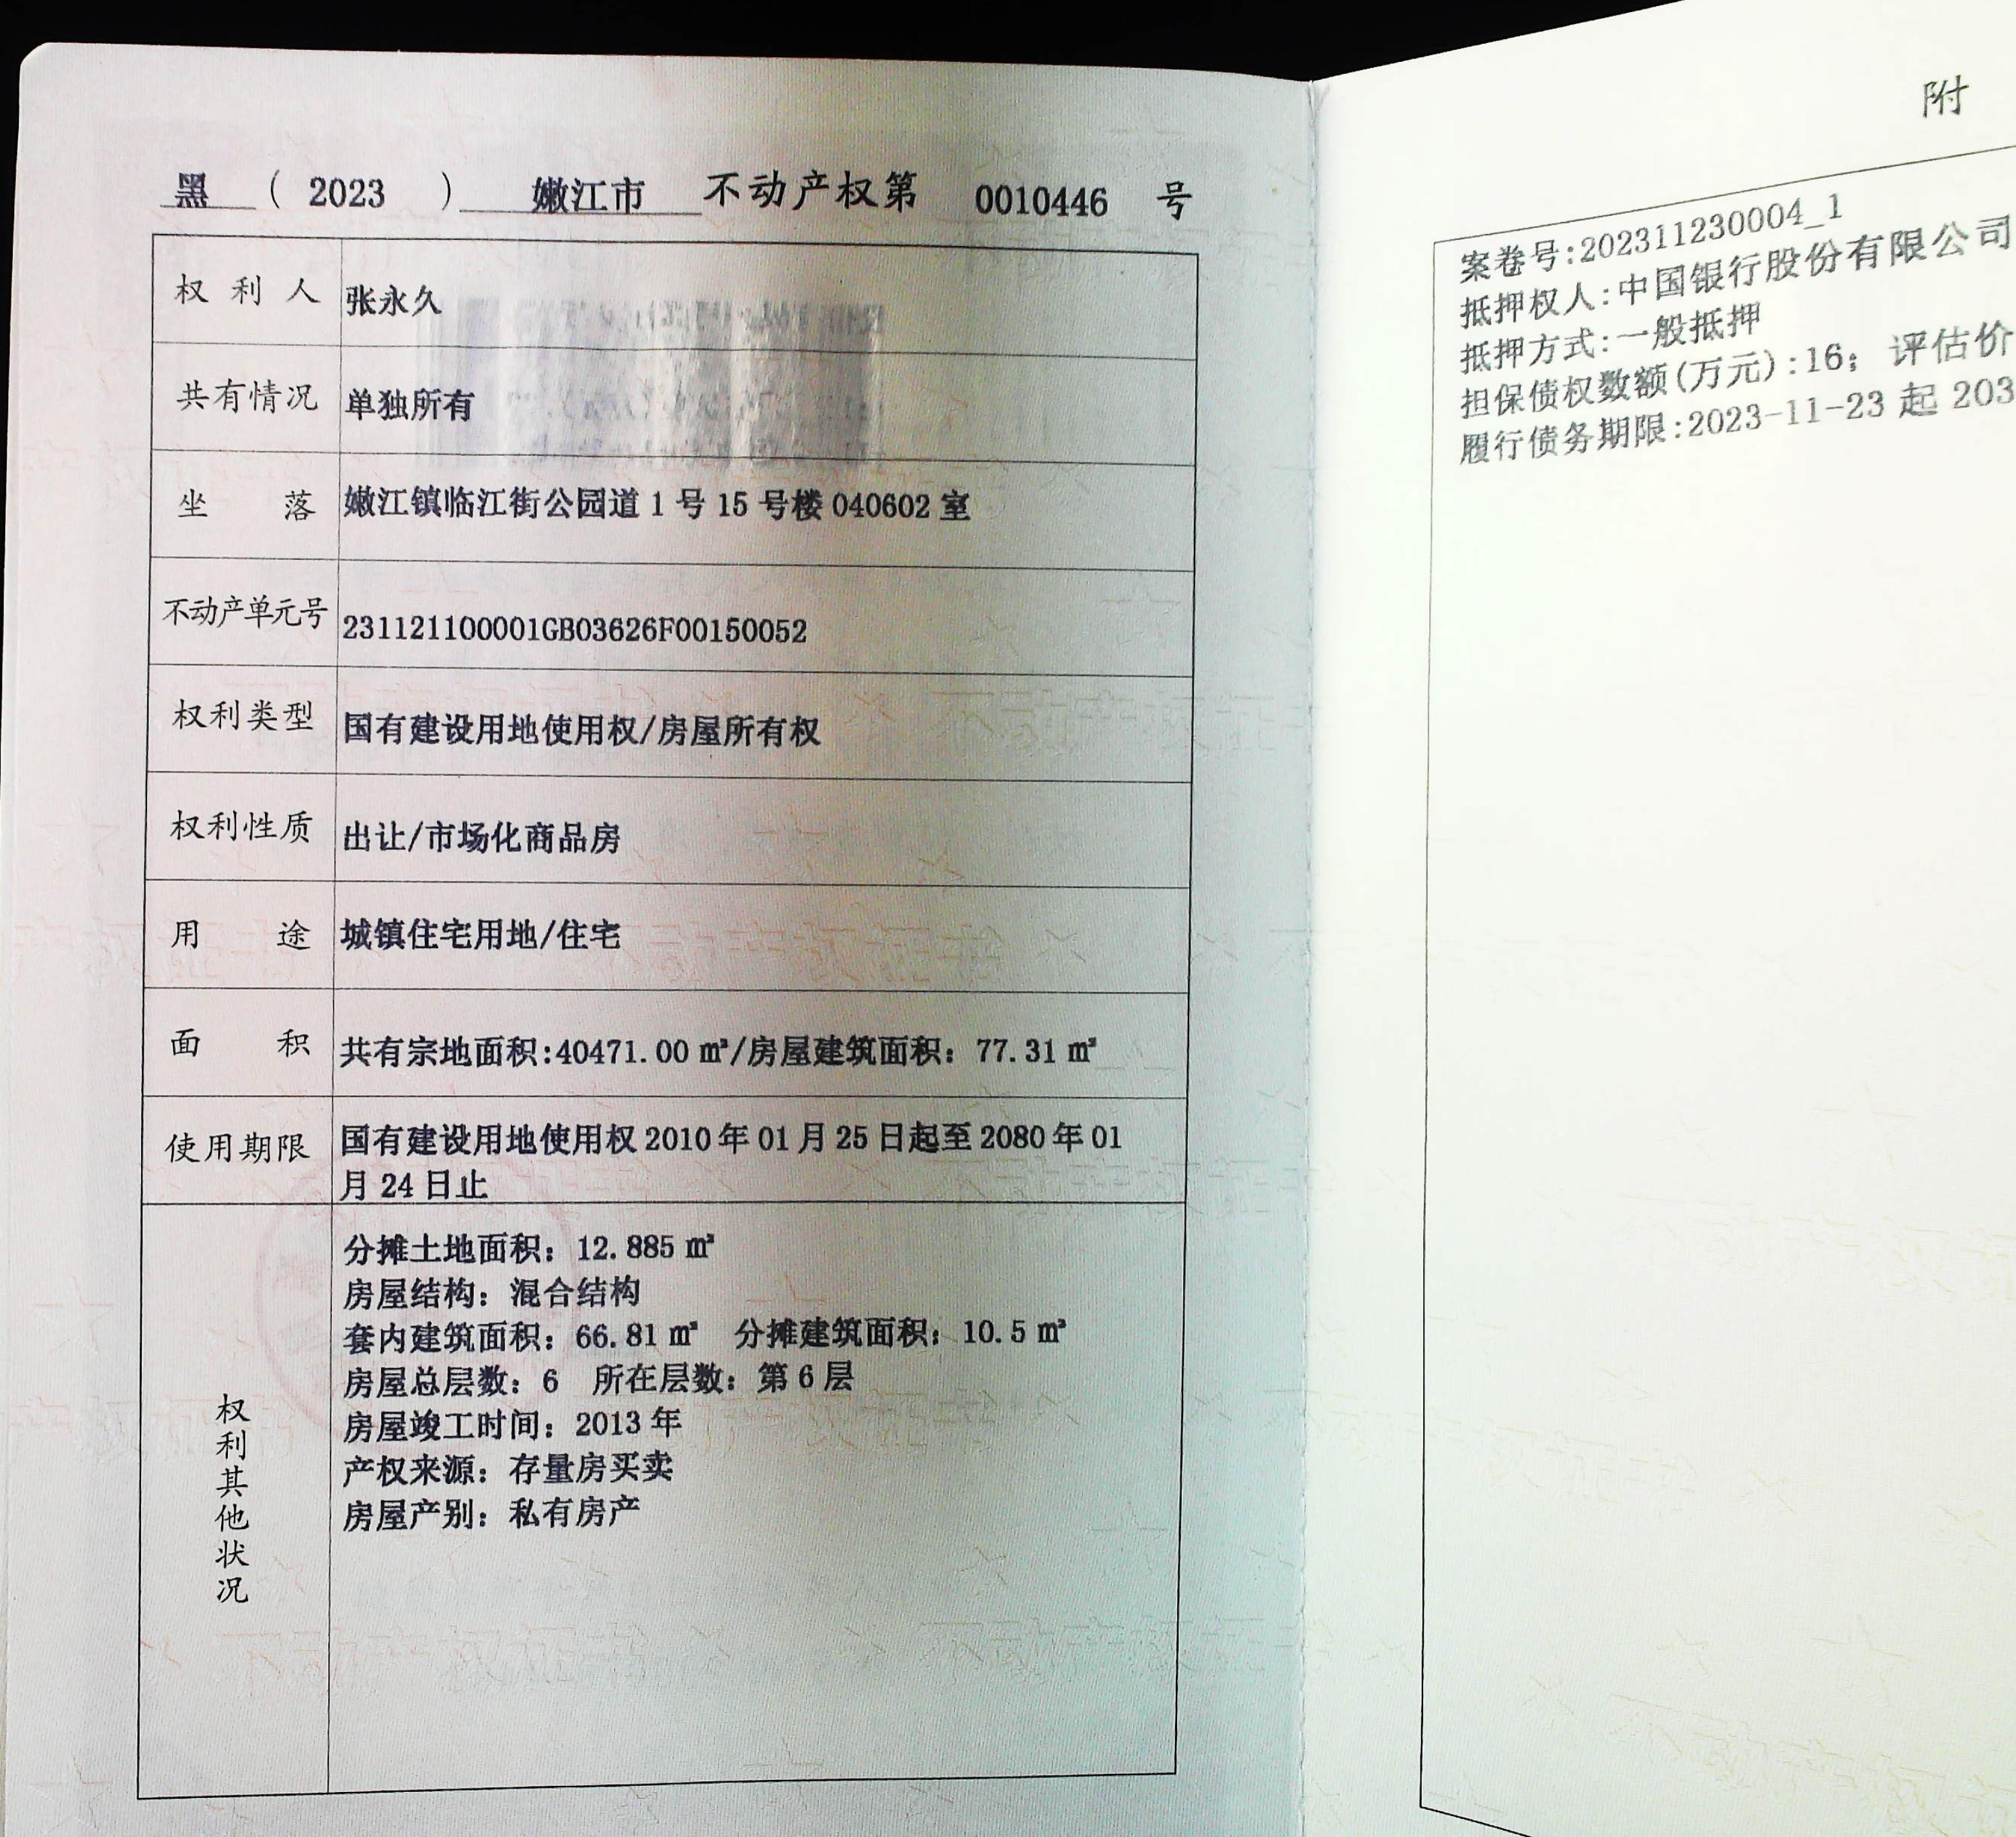 黑 ( 2023 ) 嫩江市 不动产权第 0010446 号
权利人 张永久
共有情况 单独所有
坐落 嫩江镇临江街公园道 1 号 15 号楼 040602 室
不动产单元号 231121100001GB03626F00150052
权利类型 国有建设用地使用权/房屋所有权
权利性质 出让/市场化商品房
用途 城镇住宅用地/住宅
面积 共有宗地面积:40471.00 ㎡/房屋建筑面积：77.31 ㎡
使用期限 国有建设用地使用权 2010 年 01 月 25 日起至 2080 年 01
月 24 日止
权利其他状况
分摊土地面积：12.885 ㎡
房屋结构：混合结构
套内建筑面积：66.81 ㎡ 分摊建筑面积：10.5 ㎡
房屋总层数：6 所在层数：第 6 层
房屋竣工时间：2013 年
产权来源：存量房买卖
房屋产别：私有房产
附
案卷号:202311230004_1
抵押权人:中国银行股份有限公司
抵押方式:一般抵押
担保债权数额(万元):16；评估价
履行债务期限:2023-11-23 起 203